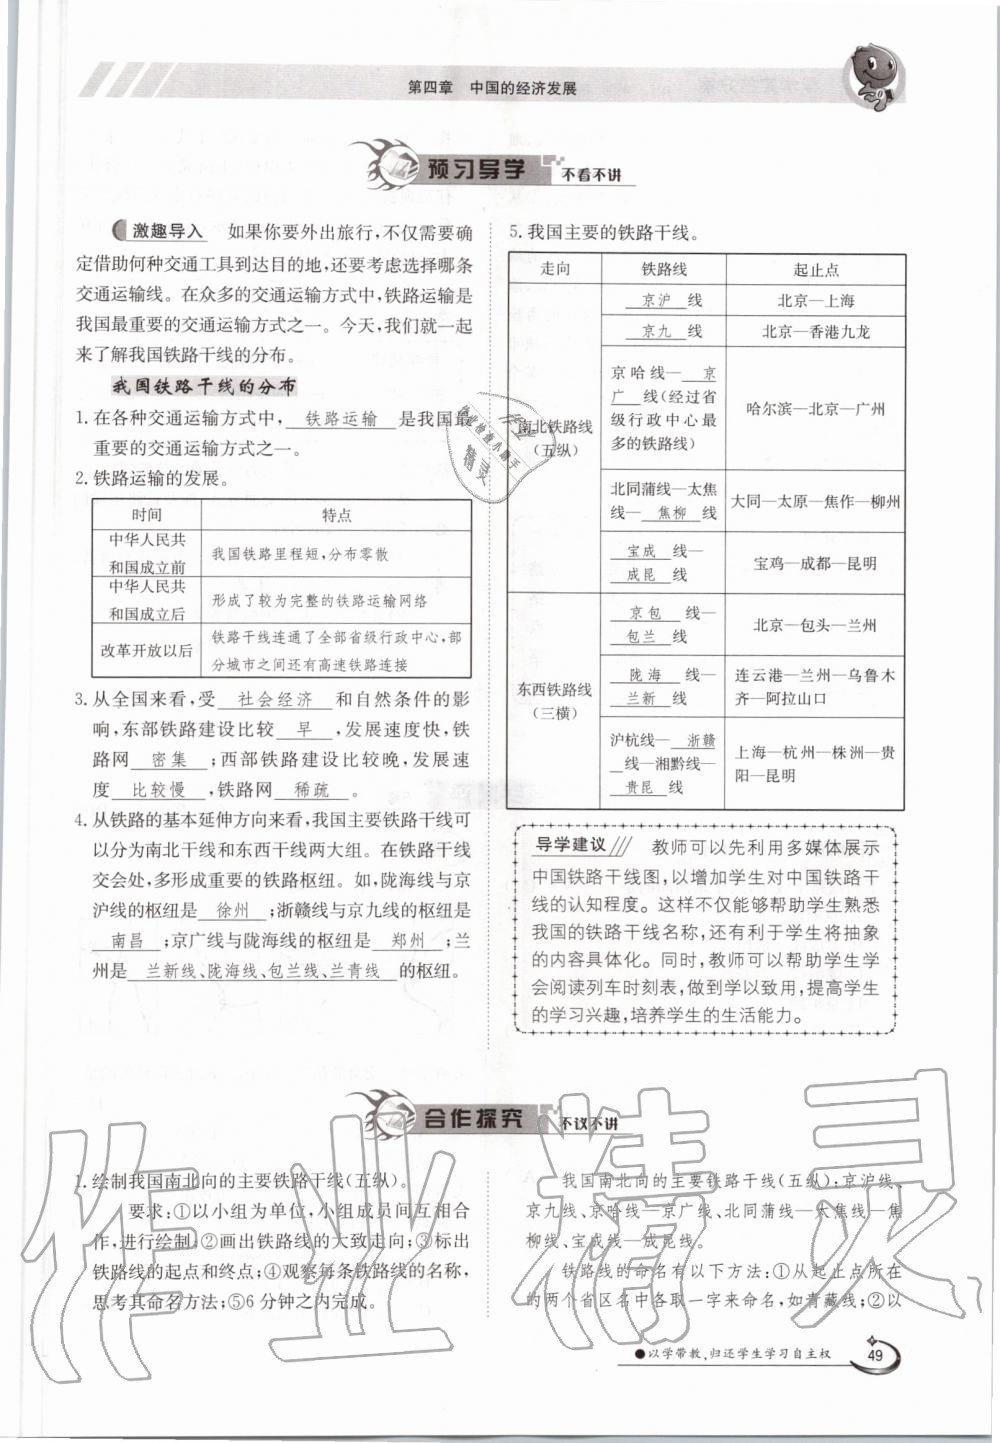 第四章　中国的经济发展
预习导学 不看不讲
激趣导入　如果你要外出旅行,不仅需要确
定借助何种交通工具到达目的地,还要考虑选择哪条
交通运输线。在众多的交通运输方式中,铁路运输是
我国最重要的交通运输方式之一。今天,我们就一起
来了解我国铁路干线的分布。
我国铁路干线的分布
1.在各种交通运输方式中, 铁路运输 是我国最
重要的交通运输方式之一。
2.铁路运输的发展。
时间 特点
中华人民共
和国成立前 我国铁路里程短,分布零散
中华人民共
和国成立后 形成了较为完整的铁路运输网络
改革开放以后 铁路干线连通了全部省级行政中心,部
分城市之间还有高速铁路连接
3.从全国来看,受 社会经济 和自然条件的影
响,东部铁路建设比较 早 ,发展速度快,铁
路网 密集 ;西部铁路建设比较晚,发展速
度 比较慢 ,铁路网 稀疏 。
4.从铁路的基本延伸方向来看,我国主要铁路干线可
以分为南北干线和东西干线两大组。在铁路干线
交会处,多形成重要的铁路枢纽。如,陇海线与京
沪线的枢纽是 徐州 ;浙赣线与京九线的枢纽是
南昌 ;京广线与陇海线的枢纽是 郑州 ;兰
州是 兰新线、陇海线、包兰线、兰青线 的枢纽。
5.我国主要的铁路干线。
走向 铁路线 起止点
南北铁路线
(五纵)
京沪 线 北京—上海
京九 线 北京—香港九龙
京哈线— 京
广 线(经过省
级行政中心最
多的铁路线)
哈尔滨—北京—广州
北同蒲线—太焦
线— 焦柳 线
大同—太原—焦作—柳州
宝成 线—
成昆 线
宝鸡—成都—昆明
东西铁路线
(三横)
京包 线—
包兰 线
北京—包头—兰州
陇海 线—
兰新 线
连云港—兰州—乌鲁木
齐—阿拉山口
沪杭线— 浙赣
线—湘黔线—
贵昆 线
上海—杭州—株洲—贵
阳—昆明
导学建议　教师可以先利用多媒体展示
中国铁路干线图,以增加学生对中国铁路干
线的认知程度。这样不仅能够帮助学生熟悉
我国的铁路干线名称,还有利于学生将抽象
的内容具体化。同时,教师可以帮助学生学
会阅读列车时刻表,做到学以致用,提高学生
的学习兴趣,培养学生的生活能力。
合作探究 不议不讲
1.绘制我国南北向的主要铁路干线(五纵)。
要求:①以小组为单位,小组成员间互相合
作,进行绘制;②画出铁路线的大致走向;③标出
铁路线的起点和终点;④观察每条铁路线的名称,
思考其命名方法;⑤6分钟之内完成。
我国南北向的主要铁路干线(五纵):京沪线、
京九线、京哈线—京广线、北同蒲线—太焦线—焦
柳线、宝成线—成昆线。
铁路线的命名有以下方法:①从起止点所在
的两个省区名中各取一字来命名,如青藏线;②以
●以学带教,归还学生学习自主权
49
作业精灵
作业
精灵